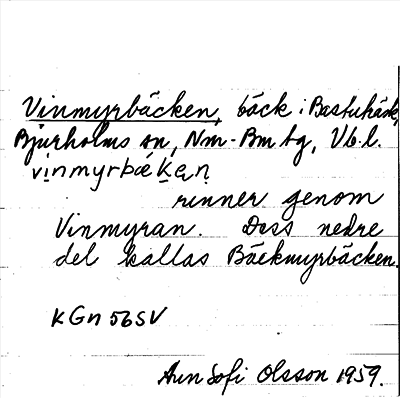 Vinmyrbäcken, bäck i Bastuträsk,
Bjurholms sn, Nm-Bm tg, Vb. l.
vi̩nmyrbæ̀ḵa̩n̩
rinner genom
Vinmyran. Dess nedre
del kallas Bäckmyrbäcken.
KGn 56 SV
Ann Sofi Olsson 1959.